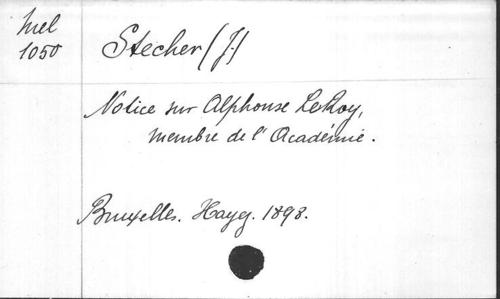 Mel
1050
Stecher (J.)
Notice sur Alphonse LeRoy,
membre de l'Académie.
Bruxelles. Hayez. 1898.